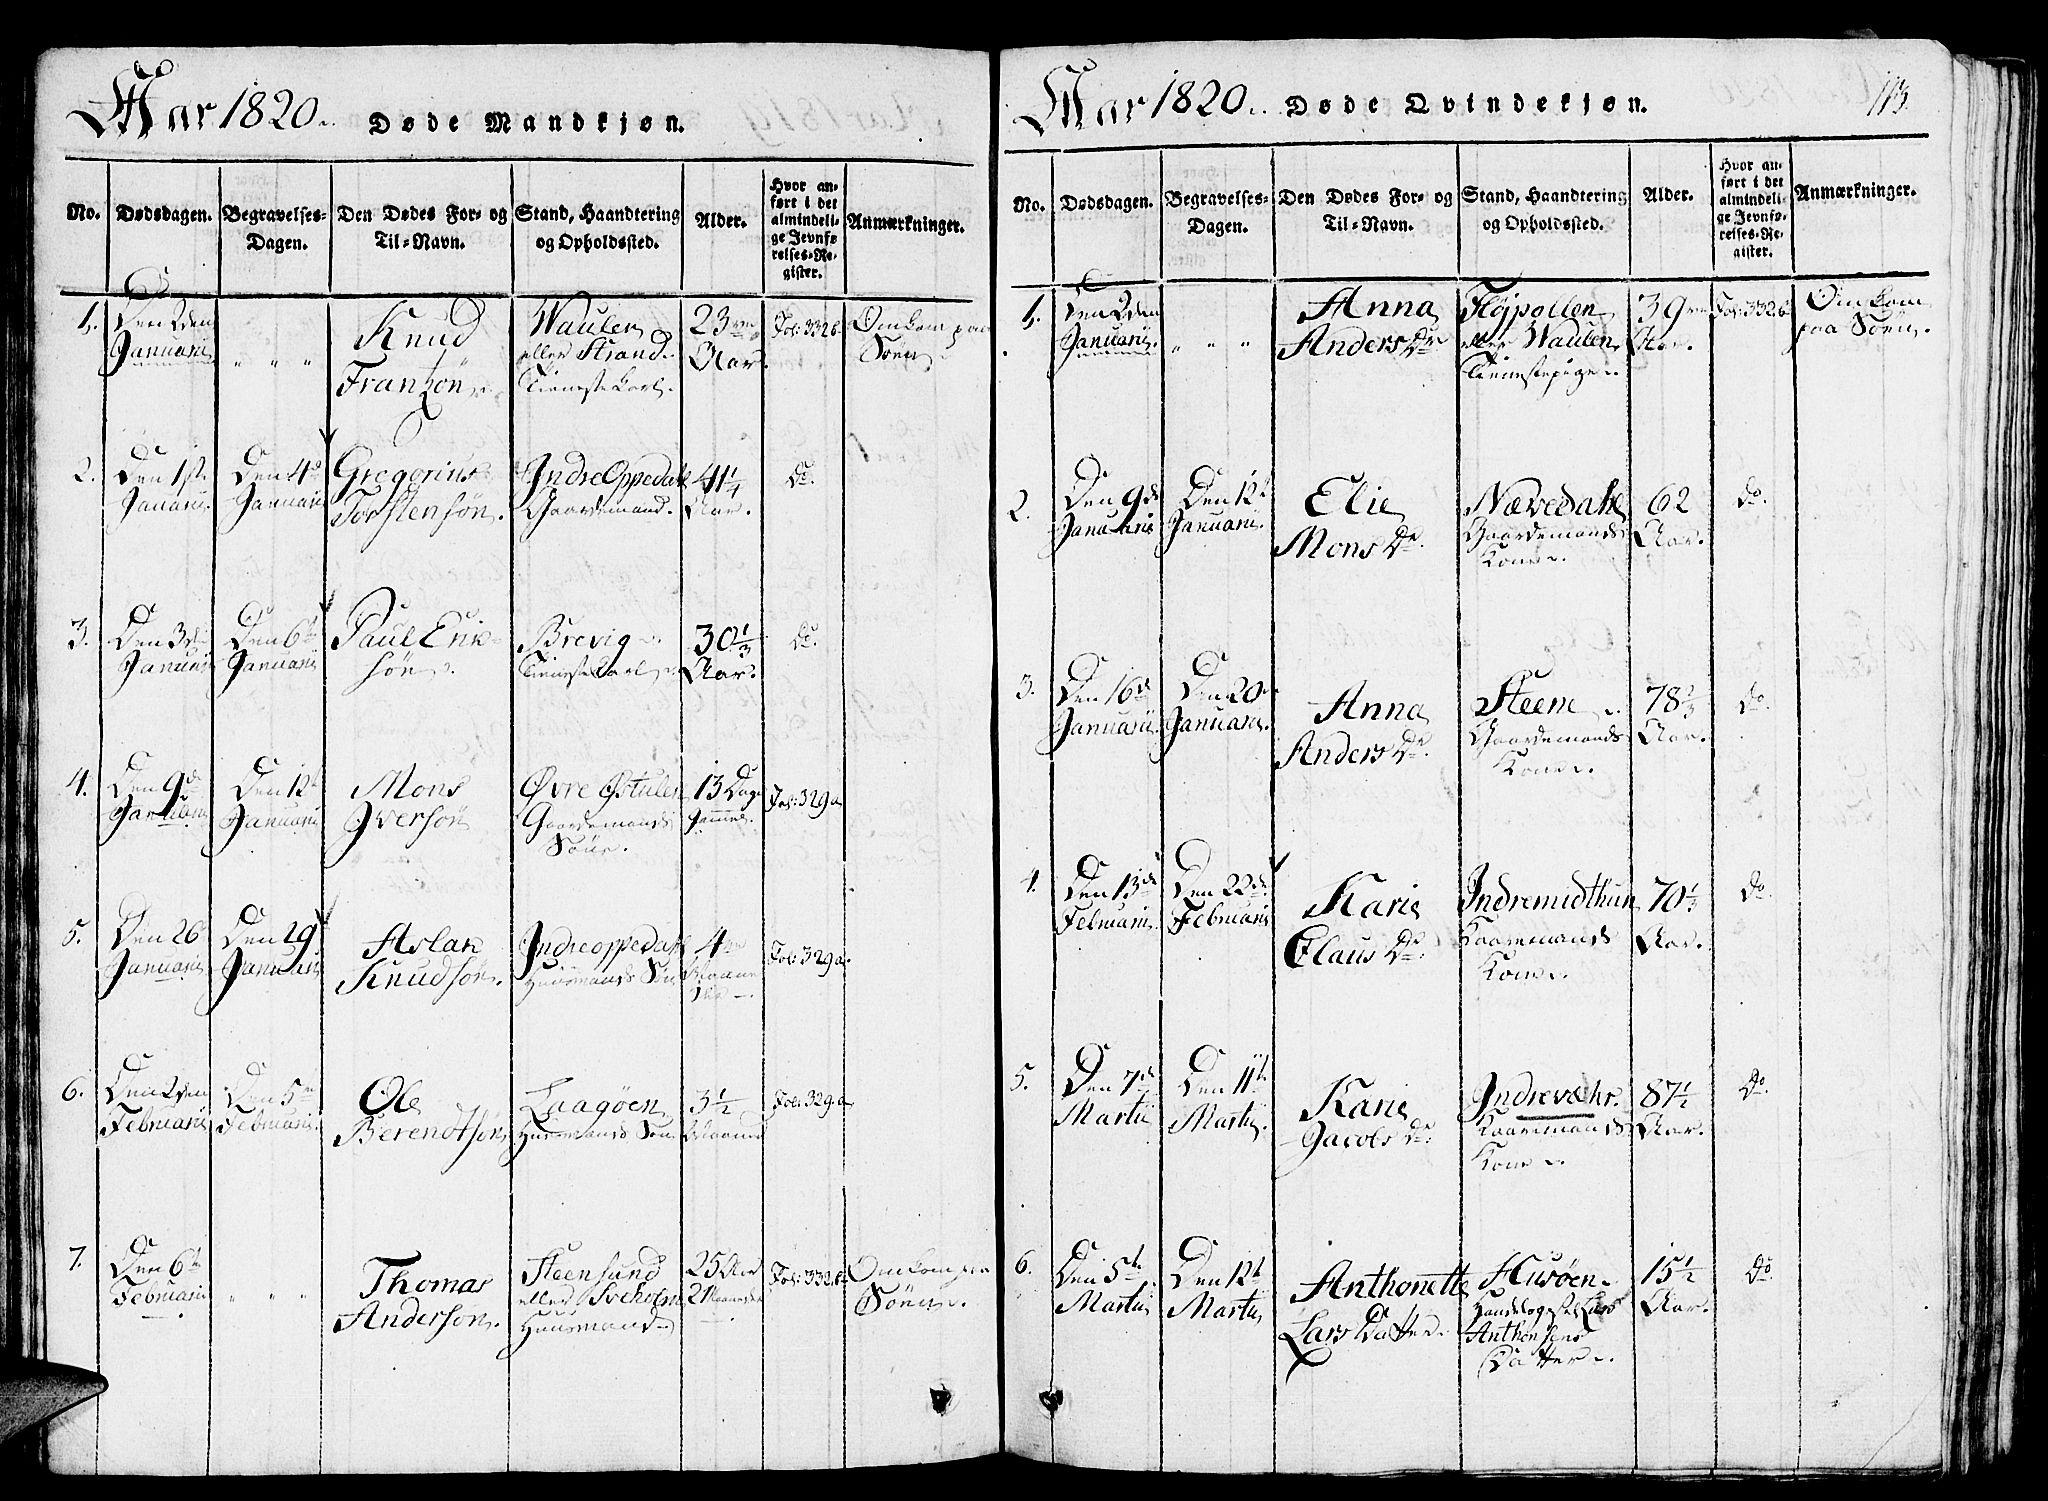 Aar 1820. Døde Mandkjøn.
No. Dødsdagen. Begravelses-Dagen. Den Dødes For- og Til-Navn. Stand, Haandtering og Opholdssted. Alder. Hvor anført i det almindelige Jevnførelses-Register. Anmærkninger.
1. Den 2den Januarii " " " Knud Franzøn. Waulen eller Strand. Tienestekarl. 23 Aar. Fol: 332 b Omkom paa Søen.
2. Den 1ste Januarii. Den 4de Januarii Gregorius Torstensøn. Indre Oppedahl Gaardemand. 41 1/4 Aar. Do.
3. Den 3die Januarii Den 6te Januarii Paul Eriksøn. Brevig Tienestekarl. 30 1/3 Aar. Do.
4. Den 9de Januarii Den 12te Januarii Mons Iversøn Øvre Østulen Gaardemands Søn. 13 Dage Gammel Fol: 329 a
5. Den 26 Januarii Den 29 Januarii Aslak Knudsøn. Indreoppedahl Huusmands Søn 4 Fol: 329 a.
6. Den 2den Februarii Den 5te Februarii. Ole Berendtsøn Laagøen Huusmands Søn 3 1/2 Maaned Fol: 329 a
7. Den 6te Februarii " " " Thomas Andersøn. Steensund eller Sveholm Huusmand 25 Aar 21 Fol: 332 b Omkom paa Søen.
Aar 1820. Døde Qvindekjøn. 113.
No. Dødsdagen. Begravelses-Dagen. Den Dødes For- og Til-Navn. Stand, Haandtering og Opholdssted. Alder. Hvor anført i det almindelige Jevnførelses-Register. Anmærkninger.
1. Den 2den Januarii. " " " Anna Anders Dr. Fløjpollen eller Waulen Tienestepige. 39 Aar. Fol: 332 b Omkom paa Søen.
2. Den 9de Januarii Den 12te Januarii. Elie Mons Dr. Nævedahl Gaardemands Kone. 62 Aar. Do.
3. Den 16de Januarii Den 20de Januarii. Anna Anders Dr. Steene Gaardemands Kone. 78 2/3 Aar. Do.
4. Den 13de Februarii Den 22de Februarii Karie Claus Dr. Indremidthun Kaaremands Kone. 70 1/3 Aar. Do.
5. Den 7de Martii Den 11te Martii. Karie Jacobs Dr. Indrevæhr. Kaaremands Kone. 87 1/2 Aar. Do.
6. Den 5te Martii Den 12te Martii Anthonette Lars Datter. Husøen Lars Anthonsens Datter. 15 1/2 Aar. Do